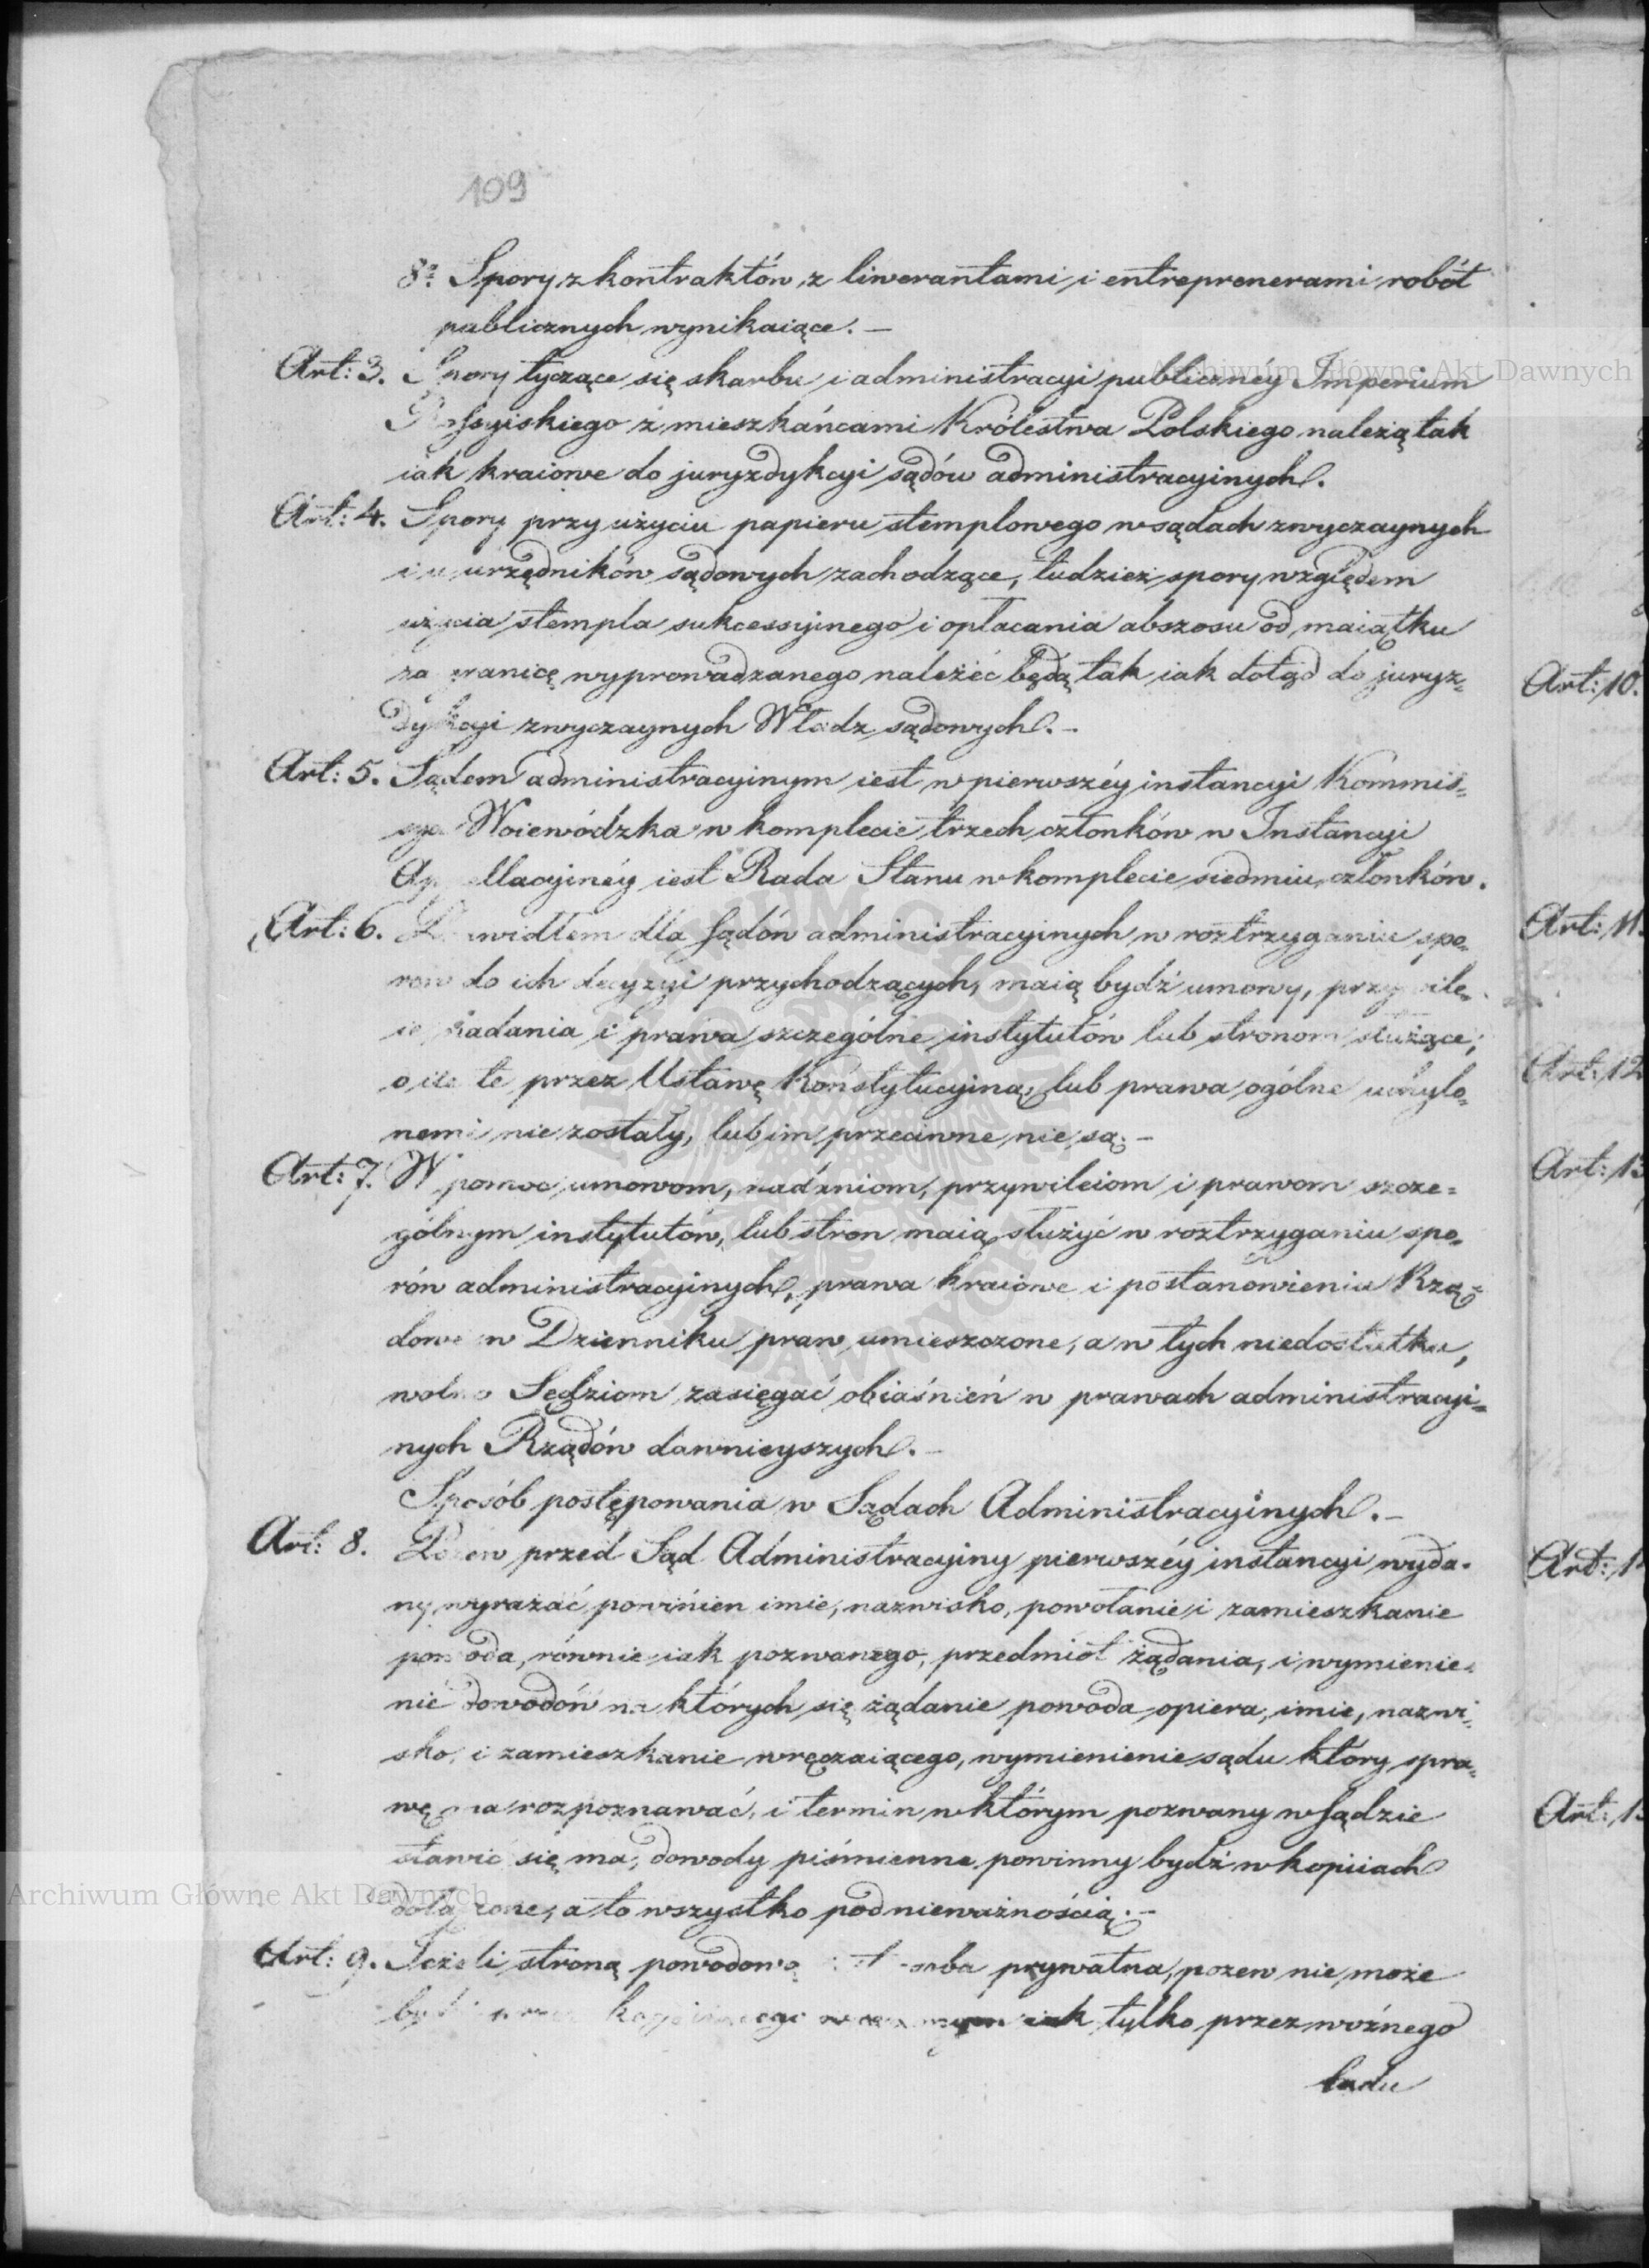 109
8º Spory z kontraktów z liwerantami i entreprenerami robót
publicznych wynikaiące. –
Art: 3. Spory tyczące się skarbu i administracyi publicznéy Imperium
Rossyiskiego z mieszkańcami Królestwa Polskiego należą tak
iak kraiowe do juryzdykcyi sądów administracyinych.
Art: 4. Spory przy użyciu papieru stemplowego w sądach zwyczaynych
i u urzędników sądowych zachodzące, tudzież spory względem
użycia stempla sukcessyinego i opłacania abszosu od maiątku
za granicę wyprowadzanego należéć będą tak iak dotąd do juryz=
dykcyi zwyczaynych Władz sądowych. –
Art: 5. Sądem administracyinym iest w pierwszéy instancyi Kommis=
sya Woiewódzka w komplecie trzech członków w Instancyi
Appellacyinéy iest Rada Stanu w komplecie siedmiu członków.
Art: 6. Prawidłem dla sądów administracyinych w roztrzyganiu spo=
rów do ich decyzyi przychodzących, maią bydź umowy, przywile=
ie nadania i prawa szczególne instytutów lub stronom służące,
o ile te przez Ustawę Konstytucyiną, lub prawa ogólne uchylo=
nemi nie zostały, lub im przeciwne nie są. –
Art: 7. W pomoc umowom, nadaniom, przywileiom i prawom szcze=
gólnym instytutów, lub stron maią służyć w roztrzyganiu spo=
rów administracyinych, prawa kraiowe i postanowienia Rzą=
dowe w Dzienniku praw umieszczone, a w tych niedostatku,
wolno Sędziom zasięgać obiaśnień w prawach administracyi=
nych Rządów dawnieyszych. –
Sposób postępowania w Sądach Administracyinych. –
Art: 8. Pozew przed Sąd Administracyiny pierwszéy instancyi wyda=
ny, wyrażać powinien imie, nazwisko, powołanie i zamieszkanie
powoda, równie iak pozwanego, przedmiot żądania, i wymienie=
nie dowodów na których się żądanie powoda opiera, imie, nazwi=
sko, i zamieszkanie wręczaiącego, wymienienie sądu który spra=
wę ma rozpoznawać, i termin w którym pozwany w sądzie
stawić się ma; dowody piśmienne powinny bydź w kopiiach
dołączone, a to wszystko pod nieważnością. –
Art: 9. Jeżeli stroną powodową iest osoba prywatna, pozew nie może
bydź przez iak tylko przez woźnego
Sądu
Art: 10.
Art: 11.
Art: 12
Art: 13
Art: 1
Art: 1
Archiwum Główne Akt Dawnych
Archiwum Główne Akt Dawnych